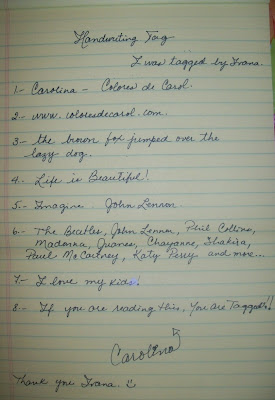 Handwriting Tag
I was tagged by Ivana.
1- Carolina - Colores de Carol.
2- www.coloresdecarol.com.
3- the brown fox jumped over the
lazy dog.
4. Life is Beautiful!
5- Imagine. John Lennon.
6.- The Beatles, John Lennon, Phil Collins,
Madonna, Juanes, Chayanne, Shakira,
Paul McCartney, Katy Perry and more...
7- I love my kids!
8- If you are reading this, You are Tagged!!
Carolina
Thank you Ivana. :)